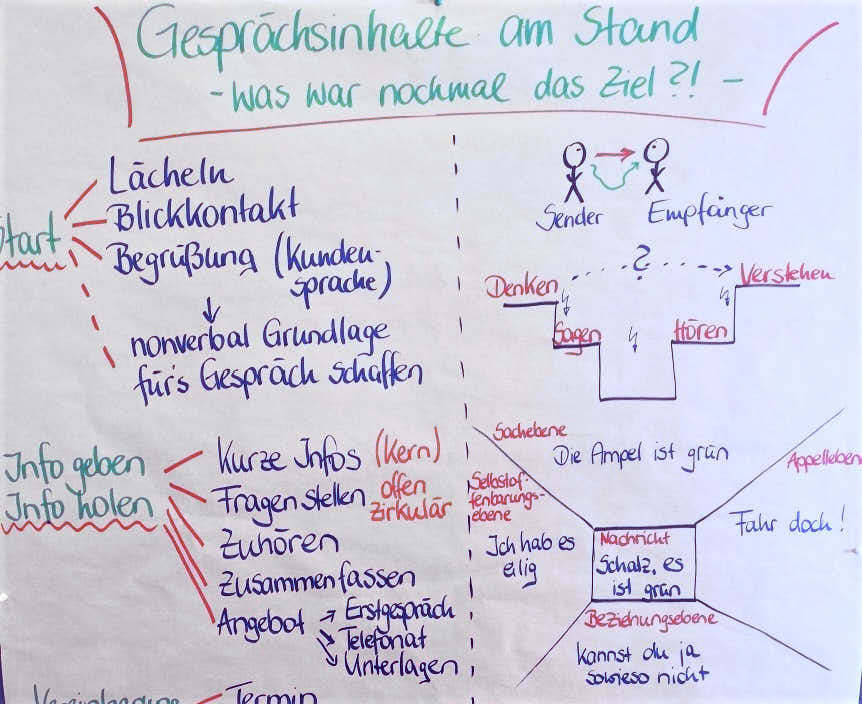 Gesprächsinhalte am Stand
- Was war nochmal das Ziel?! -
Start
Lächeln
Blickkontakt
Begrüßung (Kunden-
sprache)
nonverbal Grundlage
für's Gespräch schaffen
Info geben
Info holen
Kurze Infos (Kern)
Fragen stellen offen
zirkulär
Zuhören
Zusammenfassen
Angebot → Erstgespräch
Telefonat
Unterlagen
Vereinbarung
Termin
Sender Empfänger
Denken ? Verstehen
Sagen Hören
Sachebene
Die Ampel ist grün
Appelleben
Selbstof-
fenbarungs-
ebene
Ich hab es
eilig
Fahr doch!
Nachricht
Schatz, es
ist grün
Beziehungsebene
kannst du ja
sowieso nicht